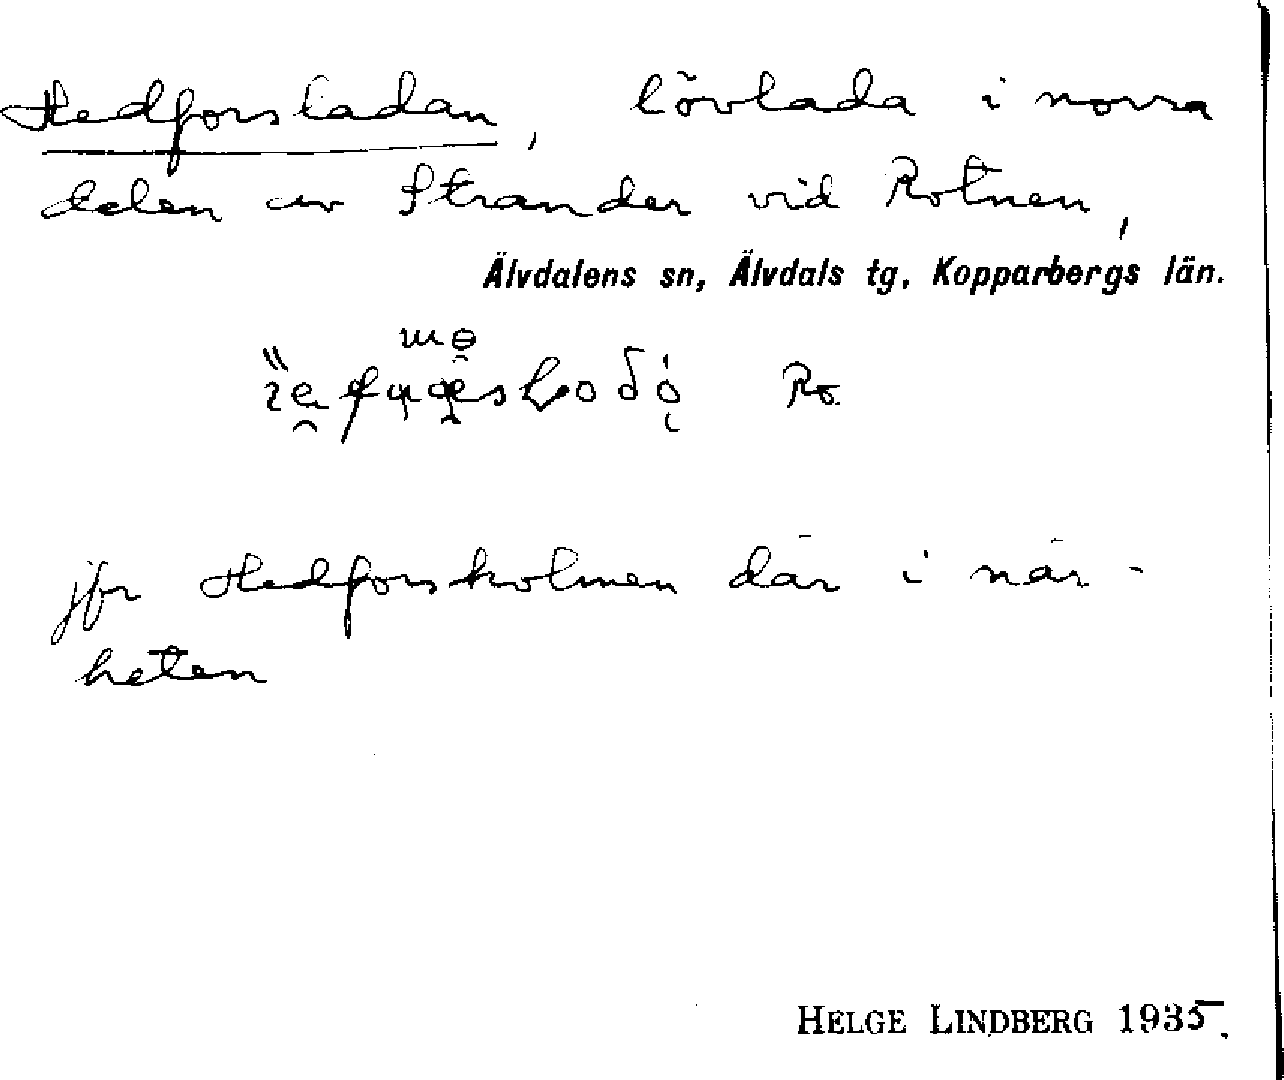 Hedforsladan, lövlada i norra
delen av Strander vid Rotnen,
Älvdalens sn, Älvdals tg, Kopparbergs län.
Ro.
jfr Hedforsholmen där i när-
heten
HELGE LINDBERG 1935.